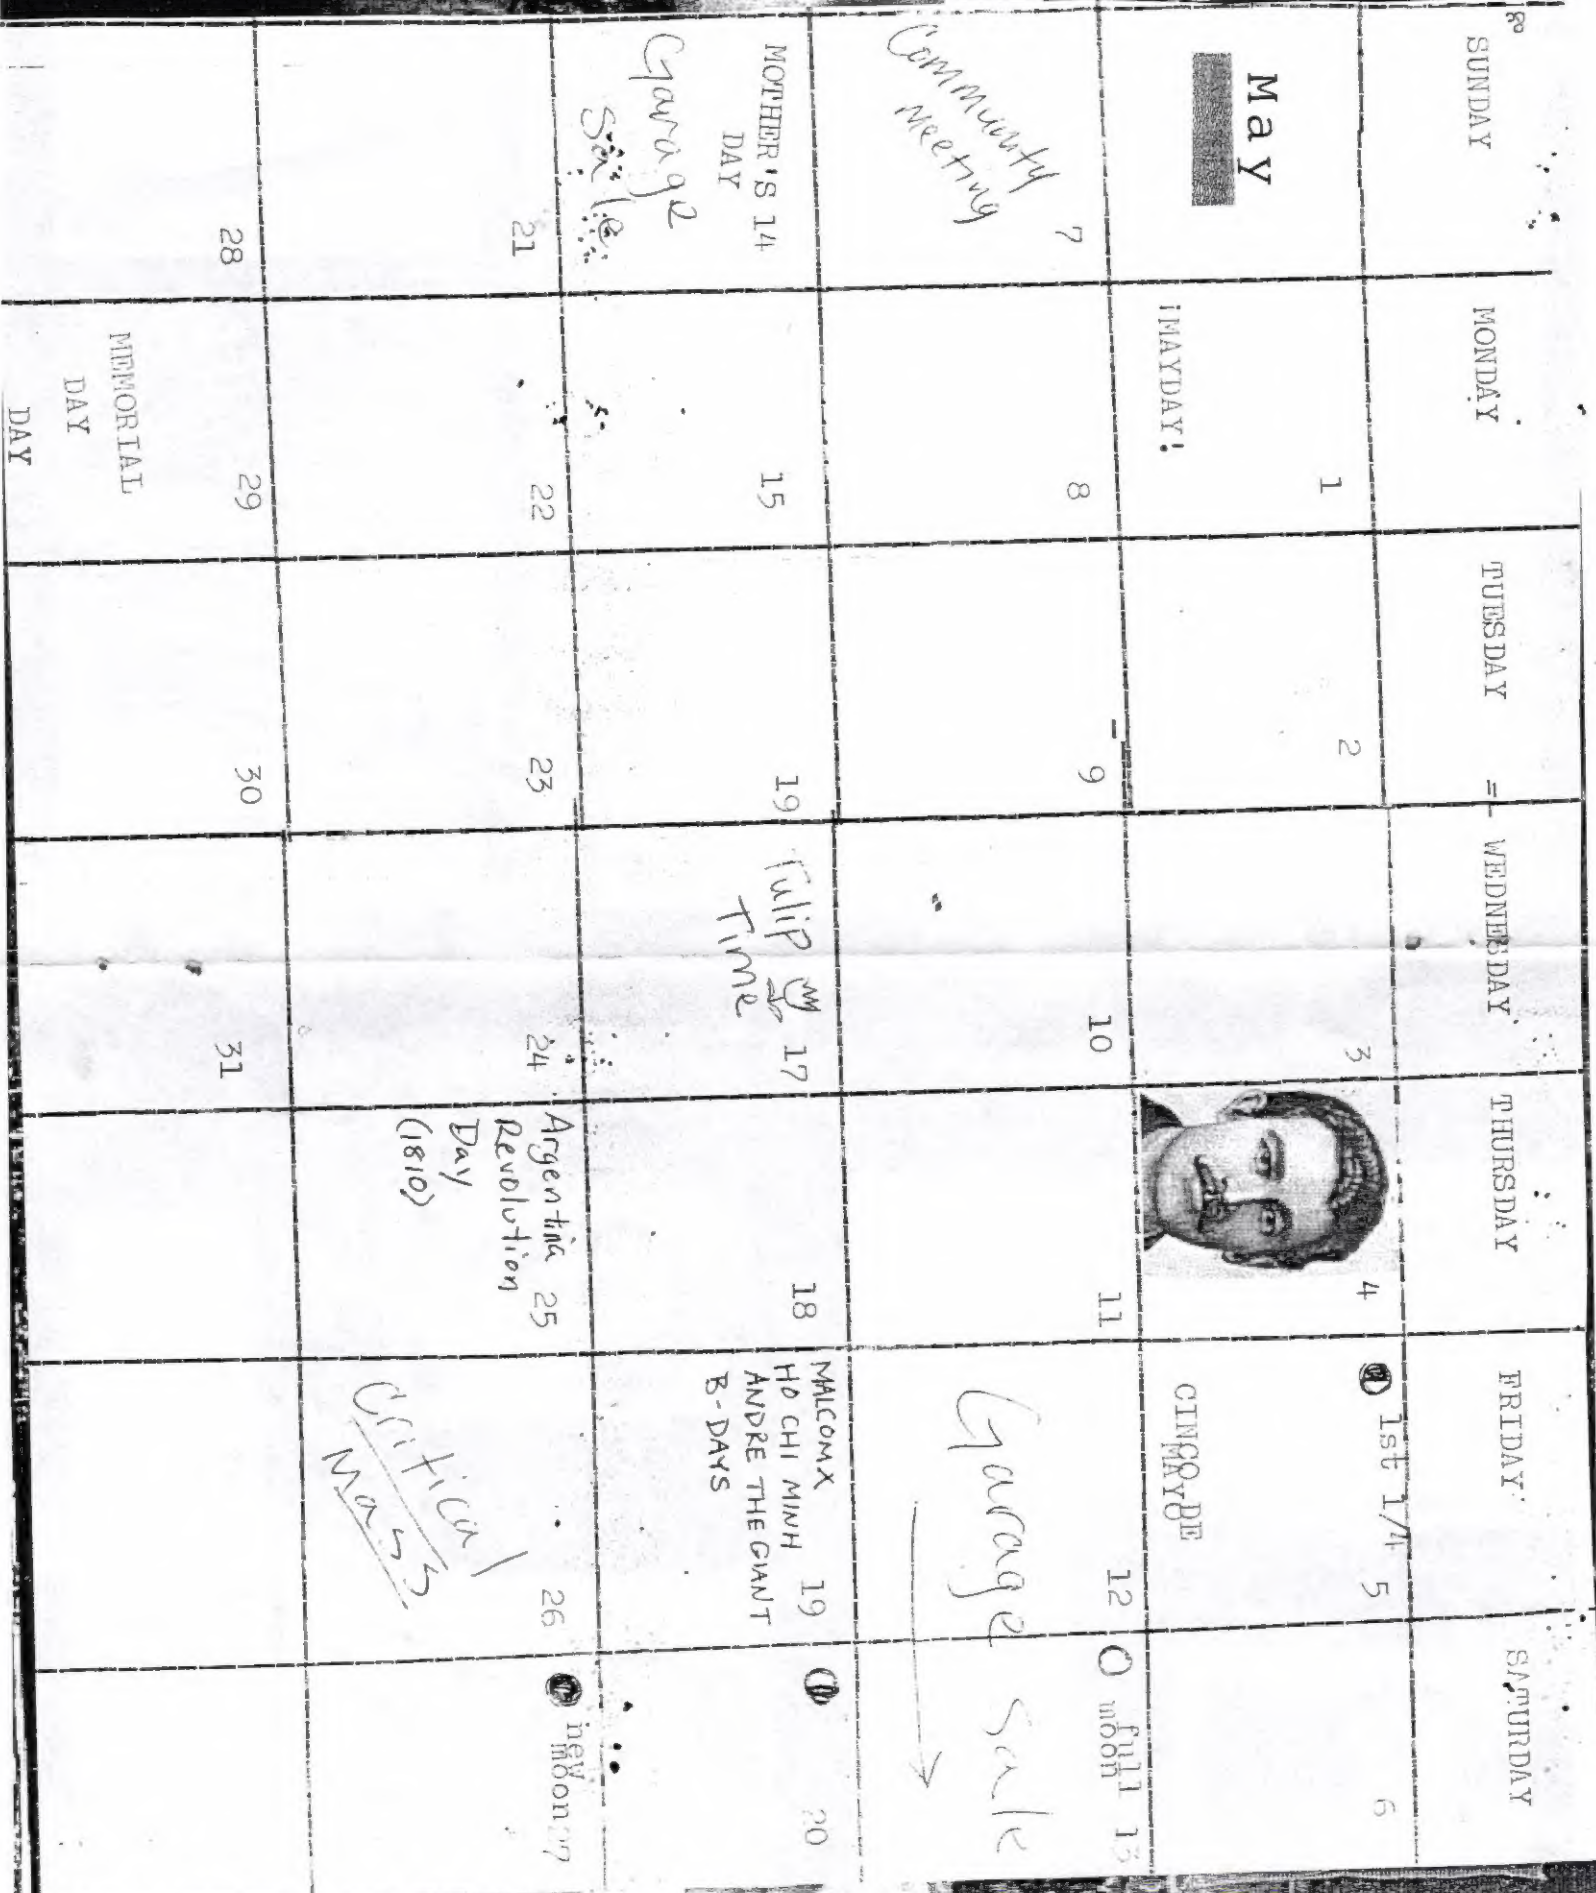 SUNDAY
MONDAY
TUESDAY
WEDNESDAY
THURSDAY
FRIDAY
SATURDAY
May
1
¡MAYDAY!
2
3
4
1st 1/4 5
CINCO DE
MAYO
6
7
Community
Meeting
8
9
10
11
12
Garage Sale
full 13
moon
MOTHER'S 14
DAY
Garage
Sale
15
19
Tulip 17
Time
18
MALCOMX
HO CHI MINH 19
ANDRE THE GIANT
B-DAYS
20
21
22
23
24
Argentina 25
Revolution
Day
(1810)
26
Critical
Mass
new
moon 27
28
29
MEMORIAL
DAY
DAY
30
31